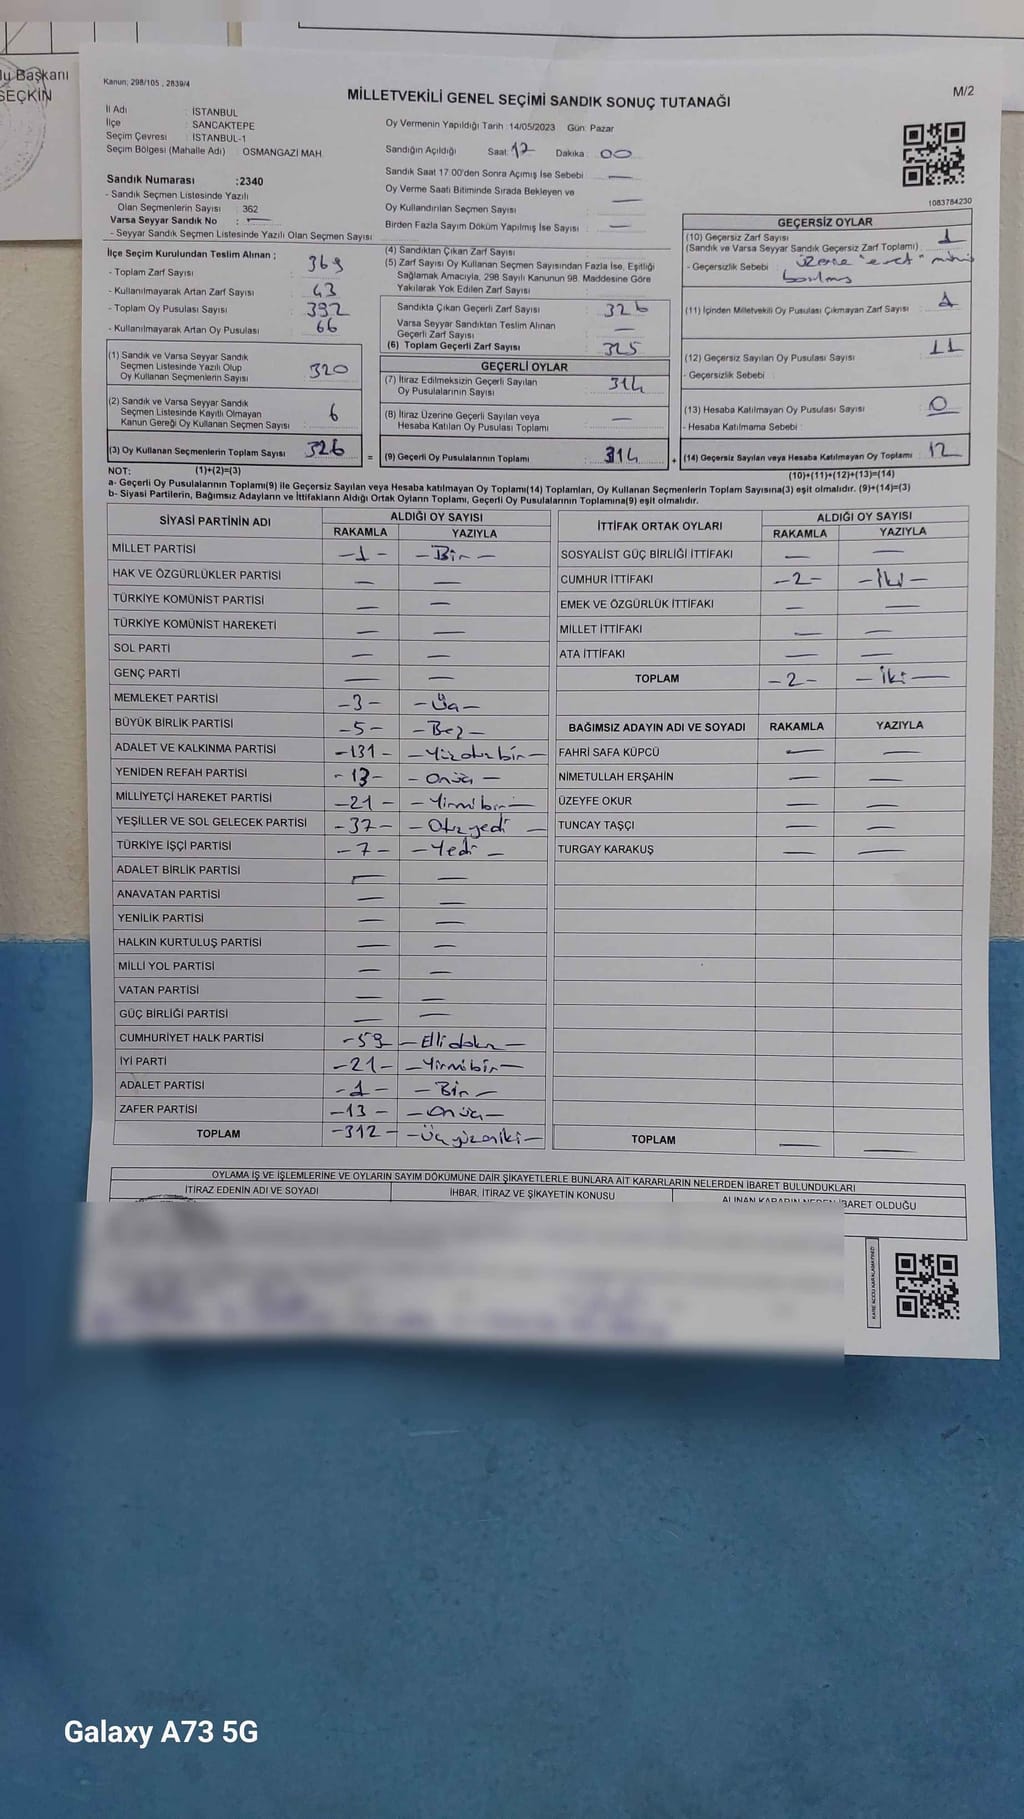 lu Başkanı
SEÇKİN
Kanun; 298/105 , 2839/4
MİLLETVEKİLİ GENEL SEÇİMİ SANDIK SONUÇ TUTANAĞI
M/2
İl Adı : İSTANBUL
İlçe : SANCAKTEPE
Seçim Çevresi : İSTANBUL-1
Seçim Bölgesi (Mahalle Adı) : OSMANGAZİ MAH.
Sandık Numarası :2340
- Sandık Seçmen Listesinde Yazılı
Olan Seçmenlerin Sayısı : 362
Varsa Seyyar Sandık No : —
- Seyyar Sandık Seçmen Listesinde Yazılı Olan Seçmen Sayısı
Oy Vermenin Yapıldığı Tarih : 14/05/2023 Gün: Pazar
Sandığın Açıldığı Saat: 17 Dakika : 00
Sandık Saat 17:00'den Sonra Açımış İse Sebebi —
Oy Verme Saati Bitiminde Sırada Bekleyen ve
Oy Kullandırılan Seçmen Sayısı —
Birden Fazla Sayım Döküm Yapılmış İse Sayısı : —
1083784230
İlçe Seçim Kurulundan Teslim Alınan ;
- Toplam Zarf Sayısı : 369
- Kullanılmayarak Artan Zarf Sayısı : 43
- Toplam Oy Pusulası Sayısı : 392
- Kullanılmayarak Artan Oy Pusulası : 66
(1) Sandık ve Varsa Seyyar Sandık
Seçmen Listesinde Yazılı Olup
Oy Kullanan Seçmenlerin Sayısı : 320
(2) Sandık ve Varsa Seyyar Sandık
Seçmen Listesinde Kayıtlı Olmayan
Kanun Gereği Oy Kullanan Seçmen Sayısı : 6
(3) Oy Kullanan Seçmenlerin Toplam Sayısı : 326
(4) Sandıktan Çıkan Zarf Sayısı
(5) Zarf Sayısı Oy Kullanan Seçmen Sayısından Fazla İse, Eşitliği
Sağlamak Amacıyla, 298 Sayılı Kanunun 98. Maddesine Göre
Yakılarak Yok Edilen Zarf Sayısı
Sandıkta Çıkan Geçerli Zarf Sayısı : 326
Varsa Seyyar Sandıktan Teslim Alınan
Geçerli Zarf Sayısı : —
(6) Toplam Geçerli Zarf Sayısı : 325
GEÇERLİ OYLAR
(7) İtiraz Edilmeksizin Geçerli Sayılan
Oy Pusulalarının Sayısı : 314
(8) İtiraz Üzerine Geçerli Sayılan veya
Hesaba Katılan Oy Pusulası Toplamı : —
= (9) Geçerli Oy Pusulalarının Toplamı : 314
GEÇERSİZ OYLAR
(10) Geçersiz Zarf Sayısı : 1
(Sandık ve Varsa Seyyar Sandık Geçersiz Zarf Toplamı)
- Geçersizlik Sebebi : üzerine "evet" mührü
basılmış
(11) İçinden Milletvekili Oy Pusulası Çıkmayan Zarf Sayısı : 1
(12) Geçersiz Sayılan Oy Pusulası Sayısı : 11
- Geçersizlik Sebebi :
(13) Hesaba Katılmayan Oy Pusulası Sayısı : 0
- Hesaba Katılmama Sebebi :
+ (14) Geçersiz Sayılan veya Hesaba Katılmayan Oy Toplamı : 12
NOT: (1)+(2)=(3)
(10)+(11)+(12)+(13)=(14)
a- Geçerli Oy Pusulalarının Toplamı(9) ile Geçersiz Sayılan veya Hesaba katılmayan Oy Toplamı(14) Toplamları, Oy Kullanan Seçmenlerin Toplam Sayısına(3) eşit olmalıdır. (9)+(14)=(3)
b- Siyasi Partilerin, Bağımsız Adayların ve İttifakların Aldığı Ortak Oyların Toplamı, Geçerli Oy Pusulalarının Toplamına(9) eşit olmalıdır.
SİYASİ PARTİNİN ADI ALDIĞI OY SAYISI
RAKAMLA YAZIYLA
MİLLET PARTİSİ —1— —Bir—
HAK VE ÖZGÜRLÜKLER PARTİSİ — —
TÜRKİYE KOMÜNİST PARTİSİ — —
TÜRKİYE KOMÜNİST HAREKETİ — —
SOL PARTİ — —
GENÇ PARTİ — —
MEMLEKET PARTİSİ —3— —Üç—
BÜYÜK BİRLİK PARTİSİ —5— —Beş—
ADALET VE KALKINMA PARTİSİ —131— —Yüzotuzbir—
YENİDEN REFAH PARTİSİ —13— —Onüç—
MİLLİYETÇİ HAREKET PARTİSİ —21— —Yirmibir—
YEŞİLLER VE SOL GELECEK PARTİSİ —37— —Otuzyedi—
TÜRKİYE İŞÇİ PARTİSİ —7— —Yedi—
ADALET BİRLİK PARTİSİ — —
ANAVATAN PARTİSİ — —
YENİLİK PARTİSİ — —
HALKIN KURTULUŞ PARTİSİ — —
MİLLİ YOL PARTİSİ — —
VATAN PARTİSİ — —
GÜÇ BİRLİĞİ PARTİSİ — —
CUMHURİYET HALK PARTİSİ —59— —Ellidokuz—
İYİ PARTİ —21— —Yirmibir—
ADALET PARTİSİ —1— —Bir—
ZAFER PARTİSİ —13— —Onüç—
TOPLAM —312— —Üçyüzoniki—
İTTİFAK ORTAK OYLARI ALDIĞI OY SAYISI
RAKAMLA YAZIYLA
SOSYALİST GÜÇ BİRLİĞİ İTTİFAKI — —
CUMHUR İTTİFAKI —2— —İki—
EMEK VE ÖZGÜRLÜK İTTİFAKI — —
MİLLET İTTİFAKI — —
ATA İTTİFAKI — —
TOPLAM —2— —İki—
BAĞIMSIZ ADAYIN ADI VE SOYADI RAKAMLA YAZIYLA
FAHRİ SAFA KÜPCÜ — —
NİMETULLAH ERŞAHİN — —
ÜZEYFE OKUR — —
TUNCAY TAŞÇI — —
TURGAY KARAKUŞ — —
TOPLAM — —
OYLAMA İŞ VE İŞLEMLERİNE VE OYLARIN SAYIM DÖKÜMÜNE DAİR ŞİKAYETLERLE BUNLARA AİT KARARLARIN NELERDEN İBARET BULUNDUKLARI
İTİRAZ EDENİN ADI VE SOYADI İHBAR, İTİRAZ VE ŞİKAYETİN KONUSU ALINAN KARARIN NEDEN İBARET OLDUĞU
Galaxy A73 5G